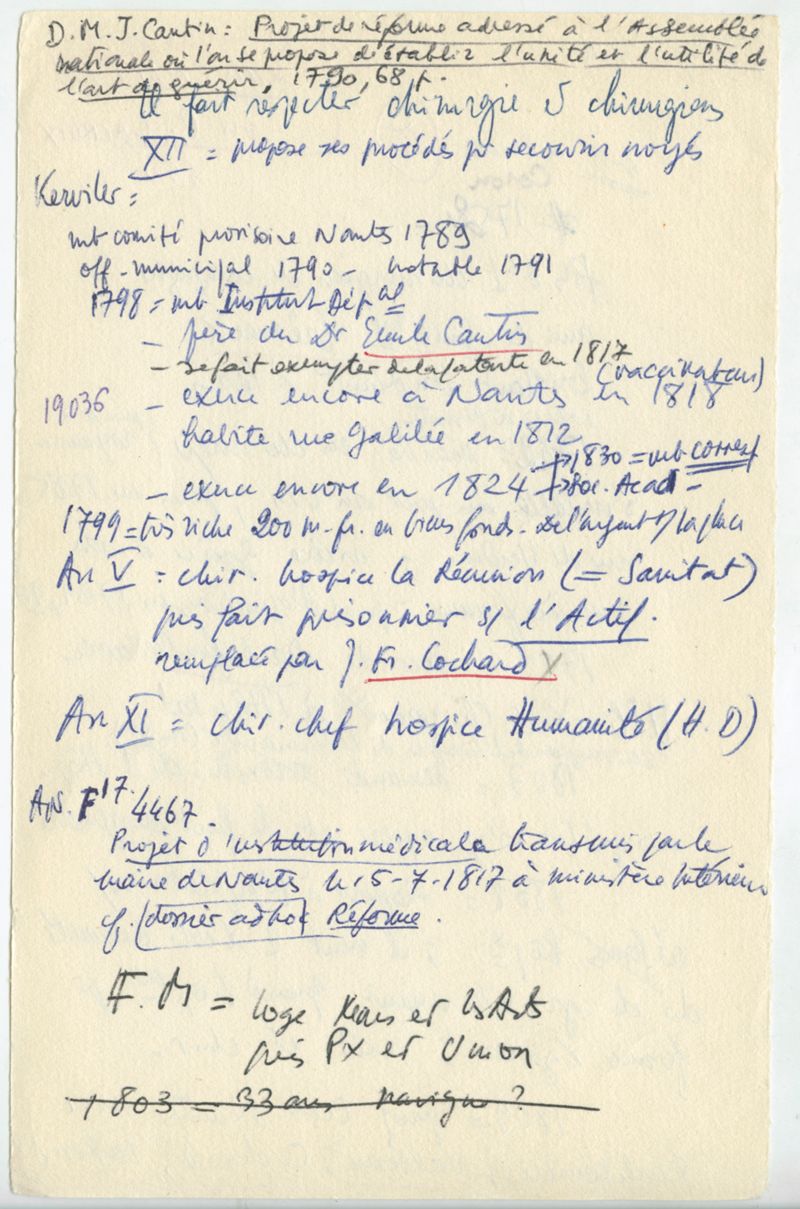 D.M.J. Cantin : Projet de réforme adressé à l'Assemblée
nationale où l'on se propose d'établir l'unité et l'utilité de
l'art de guérir, 1790, 68 p.
Il fait respecter chirurgie et chirurgiens
XII = propose ses procédés pr secourir noyés
Kerviler :
mb comité provisoire Nantes 1789
off. municipal 1790 - notable 1791
1798 = mb Institut Dép al
- père du Dr Emile Cantin
- se fait exempter de la patente en 1817
(vaccinateur)
19036 - exerce encore à Nantes en 1818
habite rue Galilée en 1812
→ 1830 = mb corresp
- exerce encore en 1824 → Soc. Acad -
1799 = très riche 200 m. fr. en biens fonds - De l'argent s/ la place
An V = chir. hospice la Réunion (= Sanitat)
puis fait prisonnier s/ l'Actif.
remplacé par J. Fr. Cochard X
An XI = chir. chef hospice Humanité (H.D)
AN. F 17. 4467.
Projet d'institution médicale transmis par le
maire de Nantes le 15-7-1817 à ministère Intérieur
cf. dossier ad hoc Réforme.
F.M = loge Mars et les Arts
puis Px et Union
1803 = 33 ans navigue ?